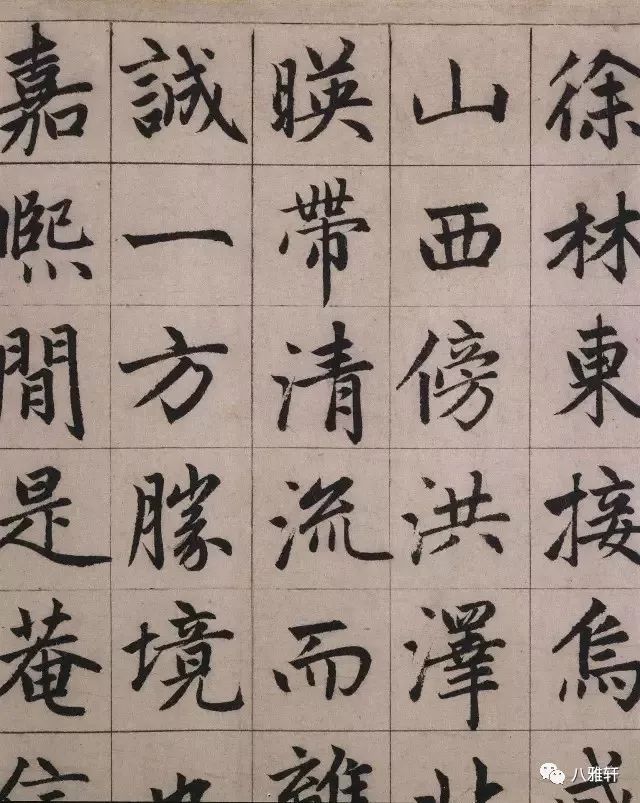 徐林東接烏
山西傍洪澤北
暎帶清流而離
誠一方勝境也
嘉熙間是菴
八雅轩